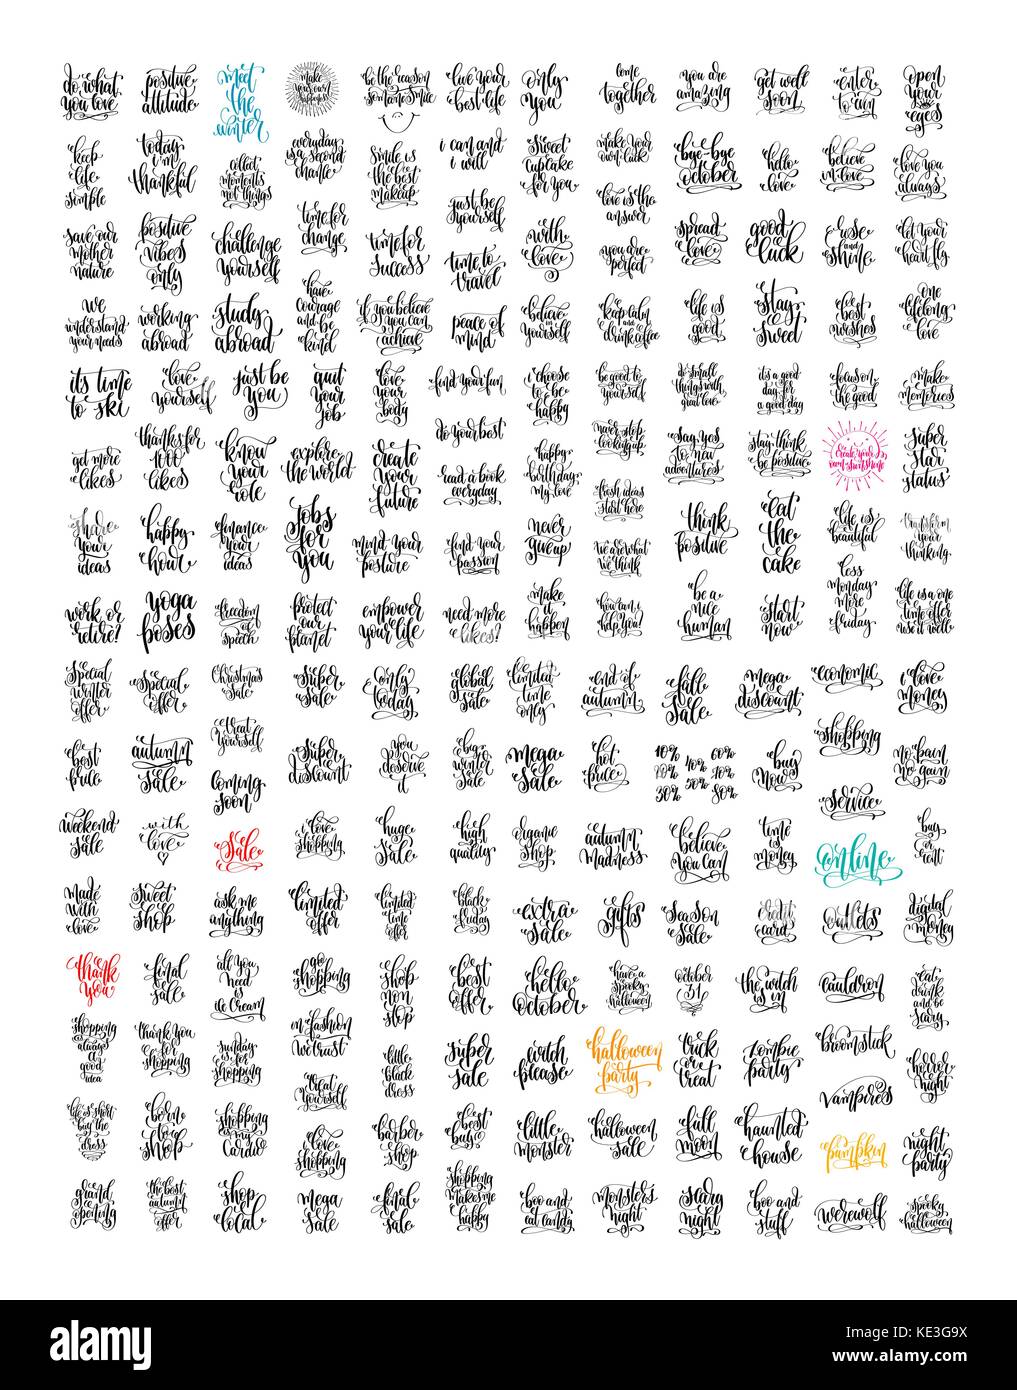 do what you love
positive attitude
meet the winter
make your own happiness
be the reason someone smile
live your best life
only you
come together
you are amazing
get well soon
enter to win
open your eyes
keep life simple
today i'm thankful
collect moments not things
everyday is a second chance
smile is the best makeup
i can and i will
sweet cupcake for you
make your own luck
bye-bye october
hello love
believe in love
love you always
save our mother nature
positive vibes only
challenge yourself
time for change
time for success
just be yourself
time to travel
with love
love is the answer
you are perfect
spread love
good luck
rise and shine
let your heart fly
we understand your needs
working abroad
study abroad
have courage and be kind
if you believe you can achieve
peace of mind
believe in yourself
keep calm and drink coffee
life is good
stay sweet
best wishes
one lifelong love
it's time to ski
love yourself
just be you
quit your job
love your body
find your fun
i choose to be happy
be good to yourself
do small things with great love
it's a good day for a good day
focus on the good
make memories
get more likes
thanks for 1000 likes
know your role
explore the world
create your future
do your best
read a book everyday
happy birthday my love
never stop looking up
fresh ideas start here
say yes to new adventures
stay think be positive
create your own sunshine
super star status
share your ideas
happy hour
finance your ideas
jobs for you
mind your posture
find your passion
never give up
we are what we think
think positive
eat the cake
life is beautiful
transform your thinking
work or retire?
yoga poses
freedom of speech
protect our planet
empower your life
need more likes?
make it happen
how can i help you?
be a nice human
start now
less monday more friday
life is a one time offer use it well
special winter offer
special offer
christmas sale
super sale
only today
global sale
limited time only
end of autumn
fall sale
mega discount
economic
i love money
best price
autumn sale
treat yourself
coming soon
super discount
you deserve it
big winter sale
mega sale
hot price
10% 20% 30% 40% 50% 60% 70% 80%
buy now
shopping
service
no pain no gain
weekend sale
with love
sale
i love shopping
huge sale
high quality
organic shop
autumn madness
believe you can
time is money
online
buy or rent
made with love
sweet shop
ask me anything
limited offer
limited time offer
black friday
extra sale
gifts
season sale
credit card
outlets
digital money
thank you
final sale
all you need is cream
go shopping
shop non stop
best offer
hello october
have a spooky halloween
october 31
the witch is in
cauldron
eat drink and be scary
shopping is always a good idea
thank you for shopping
sunday is for shopping
in fashion we trust
treat yourself
little black dress
super sale
witch please
halloween party
trick or treat
zombie party
broomstick
vampires
horror night
life is short buy the dress
born to shop
shopping is my cardio
i love shopping
barber shop
best buy
little monster
halloween sale
full moon
haunted house
pumpkin
night party
grand opening
the best autumn offer
shop local
mega sale
final sale
shopping makes me happy
boo and eat candy
monsters night
scary night
boo and stuff
werewolf
spooky halloween
alamy
a
alamy
Image ID: KE3G9X
www.alamy.com